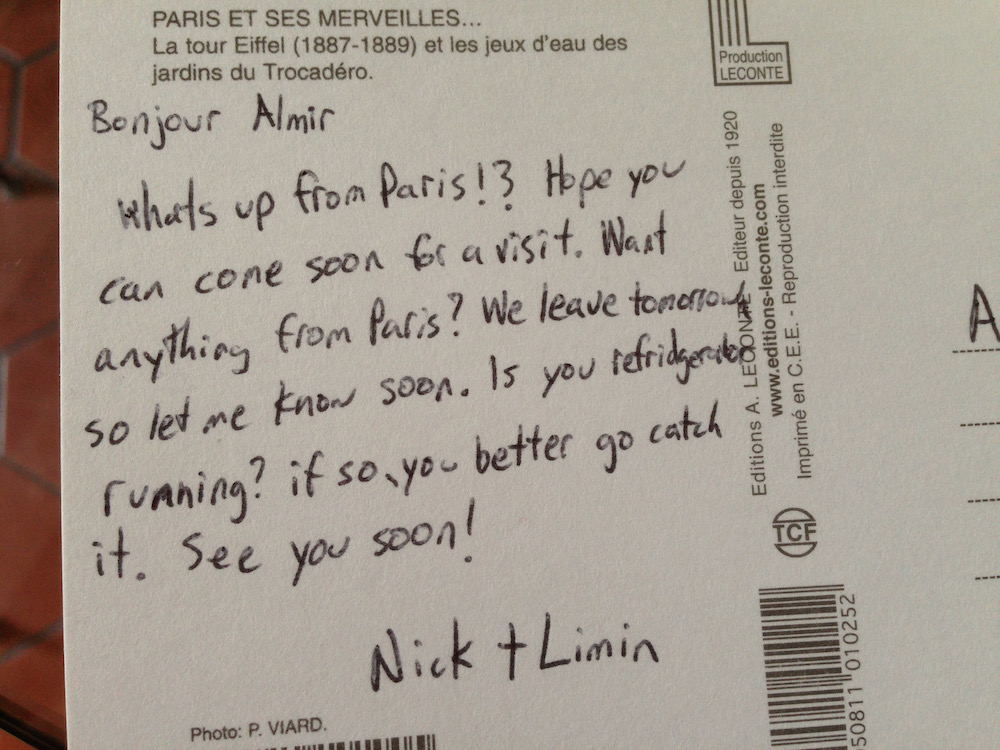 PARIS ET SES MERVEILLES...
La tour Eiffel (1887-1889) et les jeux d'eau des
jardins du Trocadéro.
Bonjour Almir
Whats up from Paris!? Hope you
can come soon for a visit. Want
anything from Paris? We leave tomorrow
so let me know soon. Is you refridgerator
running? if so, you better go catch
it. See you soon!
Nick + Limin
Photo: P. VIARD.
Production
LECONTE
Editions A. LECONTE Editeur depuis 1920
www.editions-leconte.com
Imprimé en C.E.E. - Reproduction interdite
TCF
50811 010252
A